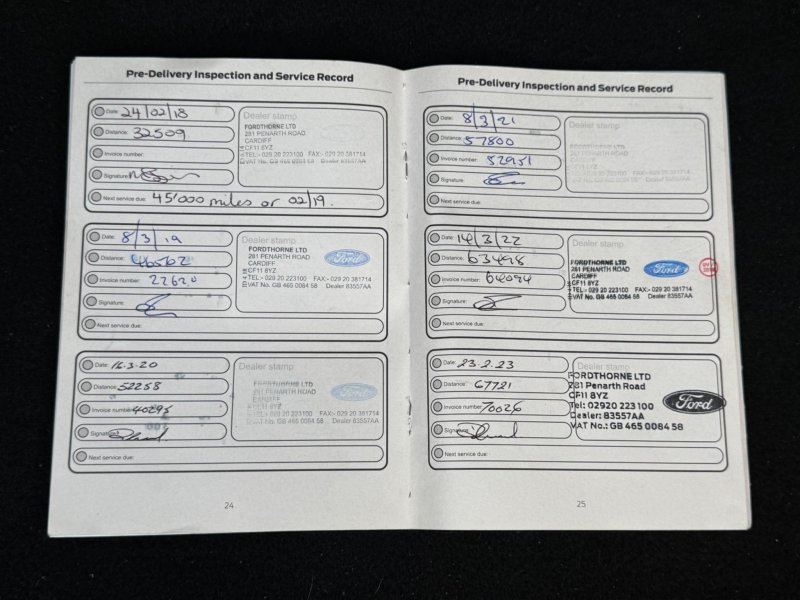 Pre-Delivery Inspection and Service Record
Date: 24/02/18
Distance: 32509
Invoice number:
Signature:
Next service due: 45'000 miles or 02/19.
Dealer stamp
FORDTHORNE LTD
281 PENARTH ROAD
CARDIFF
CF11 8YZ
TEL:- 029 20 223100 FAX:- 029 20 381714
VAT No. GB 465 0084 58 Dealer 83557AA
Date: 8/3/19
Distance: 46562
Invoice number: 22620
Signature:
Next service due:
Dealer stamp
FORDTHORNE LTD
281 PENARTH ROAD
CARDIFF
CF11 8YZ
TEL:- 029 20 223100 FAX:- 029 20 381714
VAT No. GB 465 0084 58 Dealer 83557AA
Ford
Date: 16.3.20
Distance: 52258
Invoice number: 40295
Signature:
Next service due:
Dealer stamp
FORDTHORNE LTD
281 PENARTH ROAD
CARDIFF
CF11 8YZ
TEL:- 029 20 223100 FAX:- 029 20 381714
VAT No. GB 465 0084 58 Dealer 83557AA
Ford
24
Pre-Delivery Inspection and Service Record
Date: 8/3/21
Distance: 57800
Invoice number: 52951
Signature:
Next service due:
Dealer stamp
FORDTHORNE LTD
281 PENARTH ROAD
CARDIFF
CF11 8YZ
Date: 14/3/22
Distance: 63498
Invoice number: 64094
Signature:
Next service due:
Dealer stamp
FORDTHORNE LTD
281 PENARTH ROAD
CARDIFF
CF11 8YZ
TEL:- 029 20 223100 FAX:- 029 20 381714
VAT No. GB 465 0084 58 Dealer 83557AA
Ford
Date: 23.2.23
Distance: 67721
Invoice number: 70026
Signature:
Next service due:
Dealer stamp
FORDTHORNE LTD
281 Penarth Road
CF11 8YZ
Tel: 02920 223100
Dealer: 83557AA
VAT No.: GB 465 0084 58
Ford
25